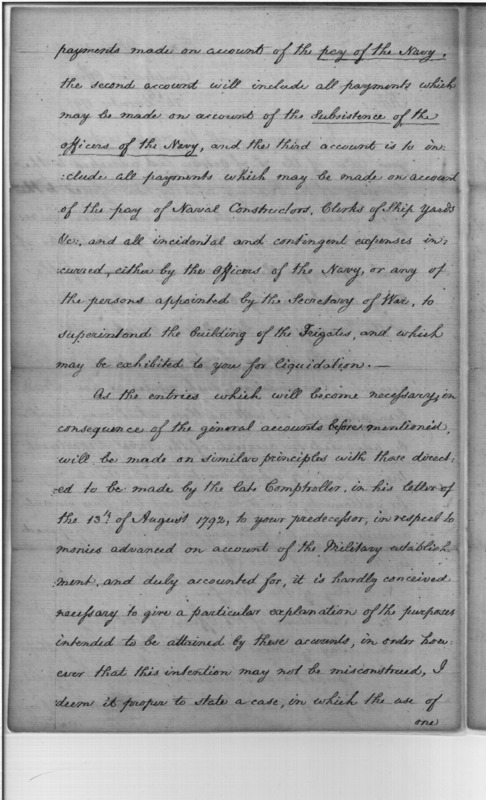 payments made on account of the pay of the Navy.
the second account will include all payments which
may be made on account of the Subsistence of the
officers of the Navy, and the third account is to in:
:clude all payments which may be made on account
of the pay of Naval Constructors, Clerks of Ship Yards
&c:, and all incidental and contingent expenses in:
curred, either by the Officers of the Navy, or any of
the persons appointed by the Secretary of War, to
superintend the building of the Frigates, and which
may be exhibited to you for liquidation.—
As the entries which will become necessary, in
consequence of the general accounts before mentioned,
will be made on similar principles with those direct:
:ed to be made by the late Comptroller, in his letter of
the 13th. of August 1792, to your predecessor, in respect to
monies advanced on account of the Military establish:
ment, and duly accounted for, it is hardly conceived
necessary to give a particular explanation of the purposes
intended to be attained by these accounts, in order how:
ever that this intention may not be misconstrued, I
deem it proper to state a case, in which the use of
one